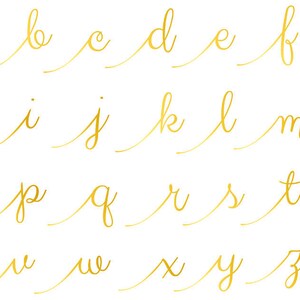 b c d e f
i j k l m
p q r s t
v w x y z